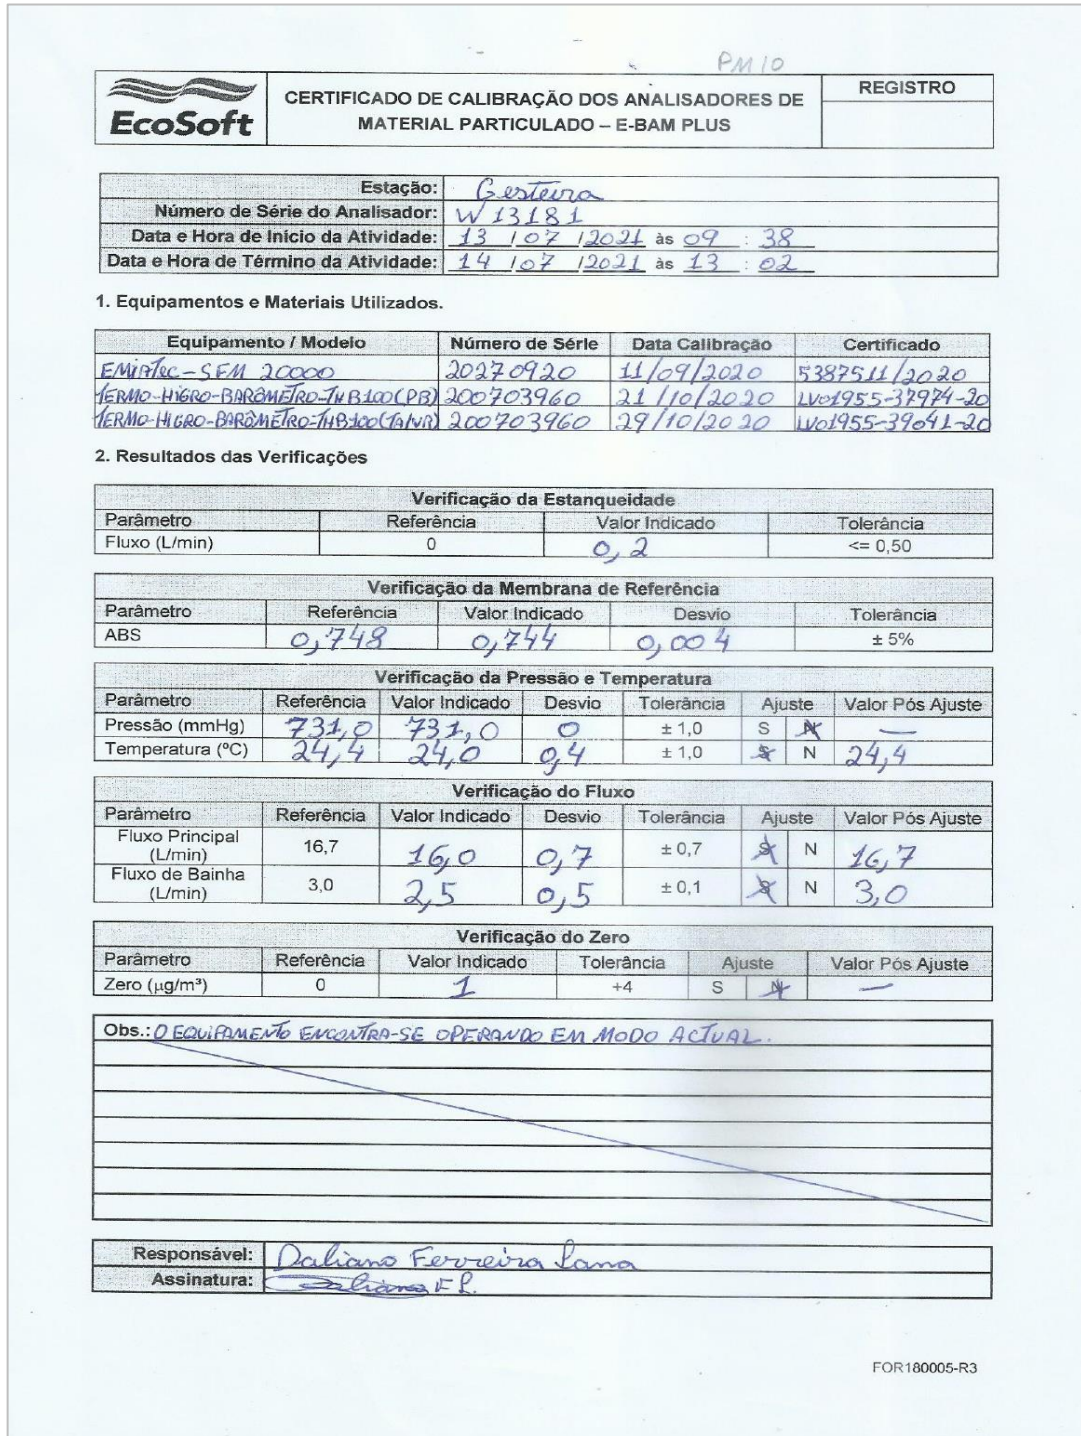 PM10
EcoSoft
CERTIFICADO DE CALIBRAÇÃO DOS ANALISADORES DE
MATERIAL PARTICULADO – E-BAM PLUS
REGISTRO
Estação: Gesteira
Número de Série do Analisador: W13181
Data e Hora de Início da Atividade: 13 / 07 / 2021 às 09 : 38
Data e Hora de Término da Atividade: 14 / 07 / 2021 às 13 : 02
1. Equipamentos e Materiais Utilizados.
Equipamento / Modelo Número de Série Data Calibração Certificado
EMIATEC-SFM 20000 20270920 11/09/2020 5387511/2020
TERMO-HIGRO-BARÔMETRO-THB100(PB) 200703960 21/10/2020 LV01955-37974-20
TERMO-HIGRO-BARÔMETRO-THB100(TA/UR) 200703960 29/10/2020 LV01955-39041-20
2. Resultados das Verificações
Verificação da Estanqueidade
Parâmetro Referência Valor Indicado Tolerância
Fluxo (L/min) 0 0,2 <= 0,50
Verificação da Membrana de Referência
Parâmetro Referência Valor Indicado Desvio Tolerância
ABS 0,748 0,744 0,004 ± 5%
Verificação da Pressão e Temperatura
Parâmetro Referência Valor Indicado Desvio Tolerância Ajuste Valor Pós Ajuste
Pressão (mmHg) 731,0 731,0 0 ± 1,0 S N —
Temperatura (ºC) 24,4 24,0 0,4 ± 1,0 S N 24,4
Verificação do Fluxo
Parâmetro Referência Valor Indicado Desvio Tolerância Ajuste Valor Pós Ajuste
Fluxo Principal
(L/min) 16,7 16,0 0,7 ± 0,7 S N 16,7
Fluxo de Bainha
(L/min) 3,0 2,5 0,5 ± 0,1 S N 3,0
Verificação do Zero
Parâmetro Referência Valor Indicado Tolerância Ajuste Valor Pós Ajuste
Zero (µg/m³) 0 1 +4 S N —
Obs.: O EQUIPAMENTO ENCONTRA-SE OPERANDO EM MODO ACTUAL.
Responsável: Daliano Ferreira Lana
Assinatura: Daliano F L.
FOR180005-R3